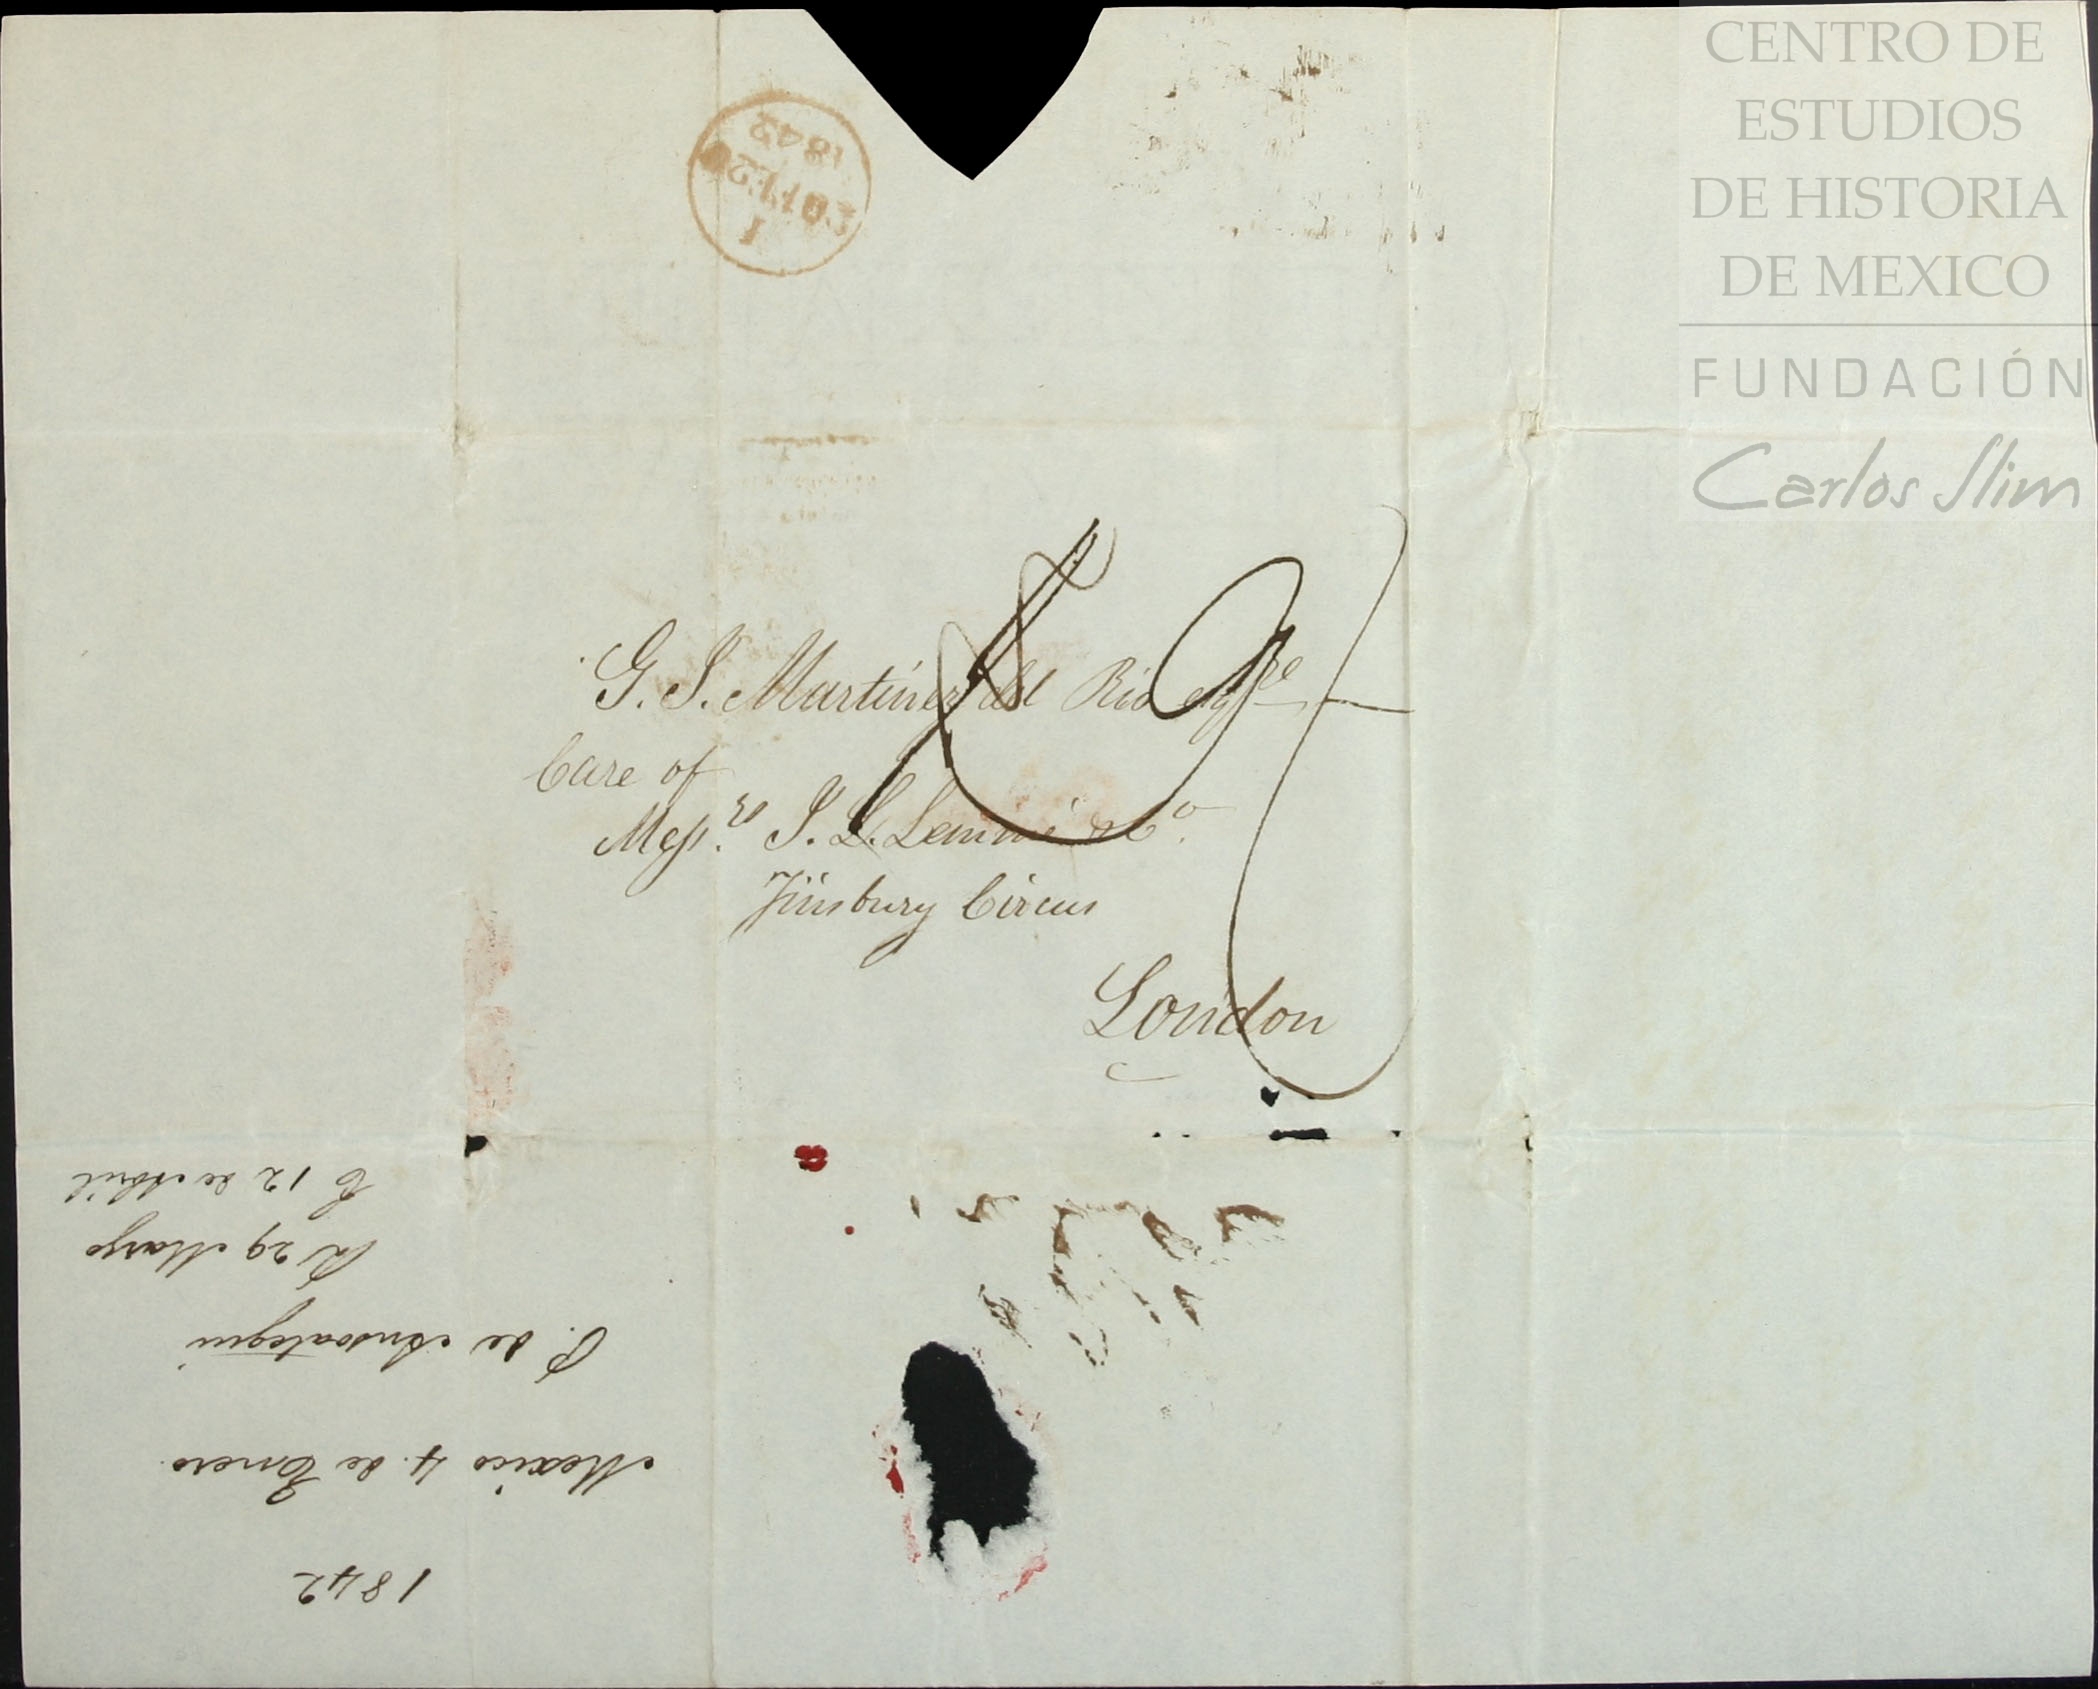 CENTRO DE
ESTUDIOS
DE HISTORIA
DE MEXICO
FUNDACIÓN
Carlos Slim
1842
G. J. Martinez del Rio Esqre
Care of
Messrs J. L. Lemmé & Co.
Finsbury Circus
London
1842
Mexico 4. de Enero.
P. de Ansoategui
Rl 29 Marzo
C 12 de Abril